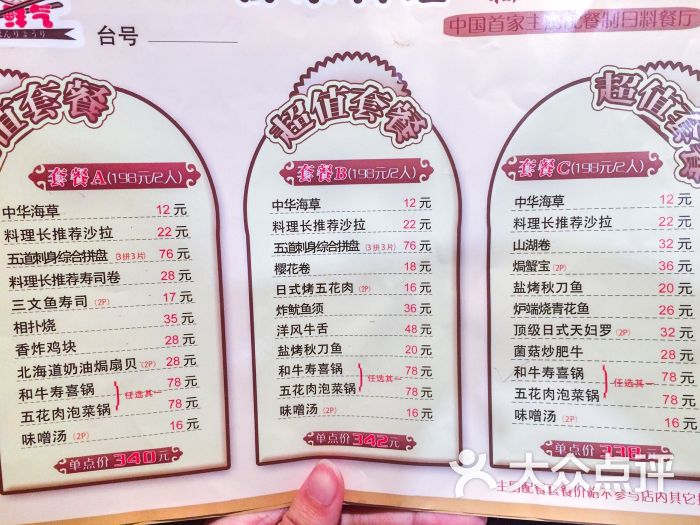 鲜气
んりょうり
台号
中国首家主厨配餐制日料餐厅
值套餐
套餐A(198元/2人)
中华海草 12元
料理长推荐沙拉 22元
五道刺身综合拼盘(3拼3片) 76元
料理长推荐寿司卷 28元
三文鱼寿司(2P) 17元
相扑烧 35元
香炸鸡块 28元
北海道奶油焗扇贝(2P) 28元
和牛寿喜锅 78元
五花肉泡菜锅 78元
任选其一
味噌汤(2P) 16元
单点价340元
超值套餐
套餐B(198元/2人)
中华海草 12元
料理长推荐沙拉 22元
五道刺身综合拼盘(3拼3片) 76元
樱花卷 18元
日式烤五花肉(2P) 16元
炸鱿鱼须 36元
洋风牛舌 48元
盐烤秋刀鱼 20元
和牛寿喜锅 78元
五花肉泡菜锅 78元
任选其一
味噌汤(2P) 16元
单点价342元
超值套
套餐C(198元/2人)
中华海草 12元
料理长推荐沙拉 22元
山湖卷 32元
焗蟹宝(2P) 36元
盐烤秋刀鱼 20元
炉端烧青花鱼 26元
顶级日式天妇罗(2P) 32元
菌菇炒肥牛 28元
和牛寿喜锅 78元
五花肉泡菜锅 78
任选其一
味噌汤(2P) 16元
单点价338元
主厨配餐套餐价格不参与店内其它
大众点评